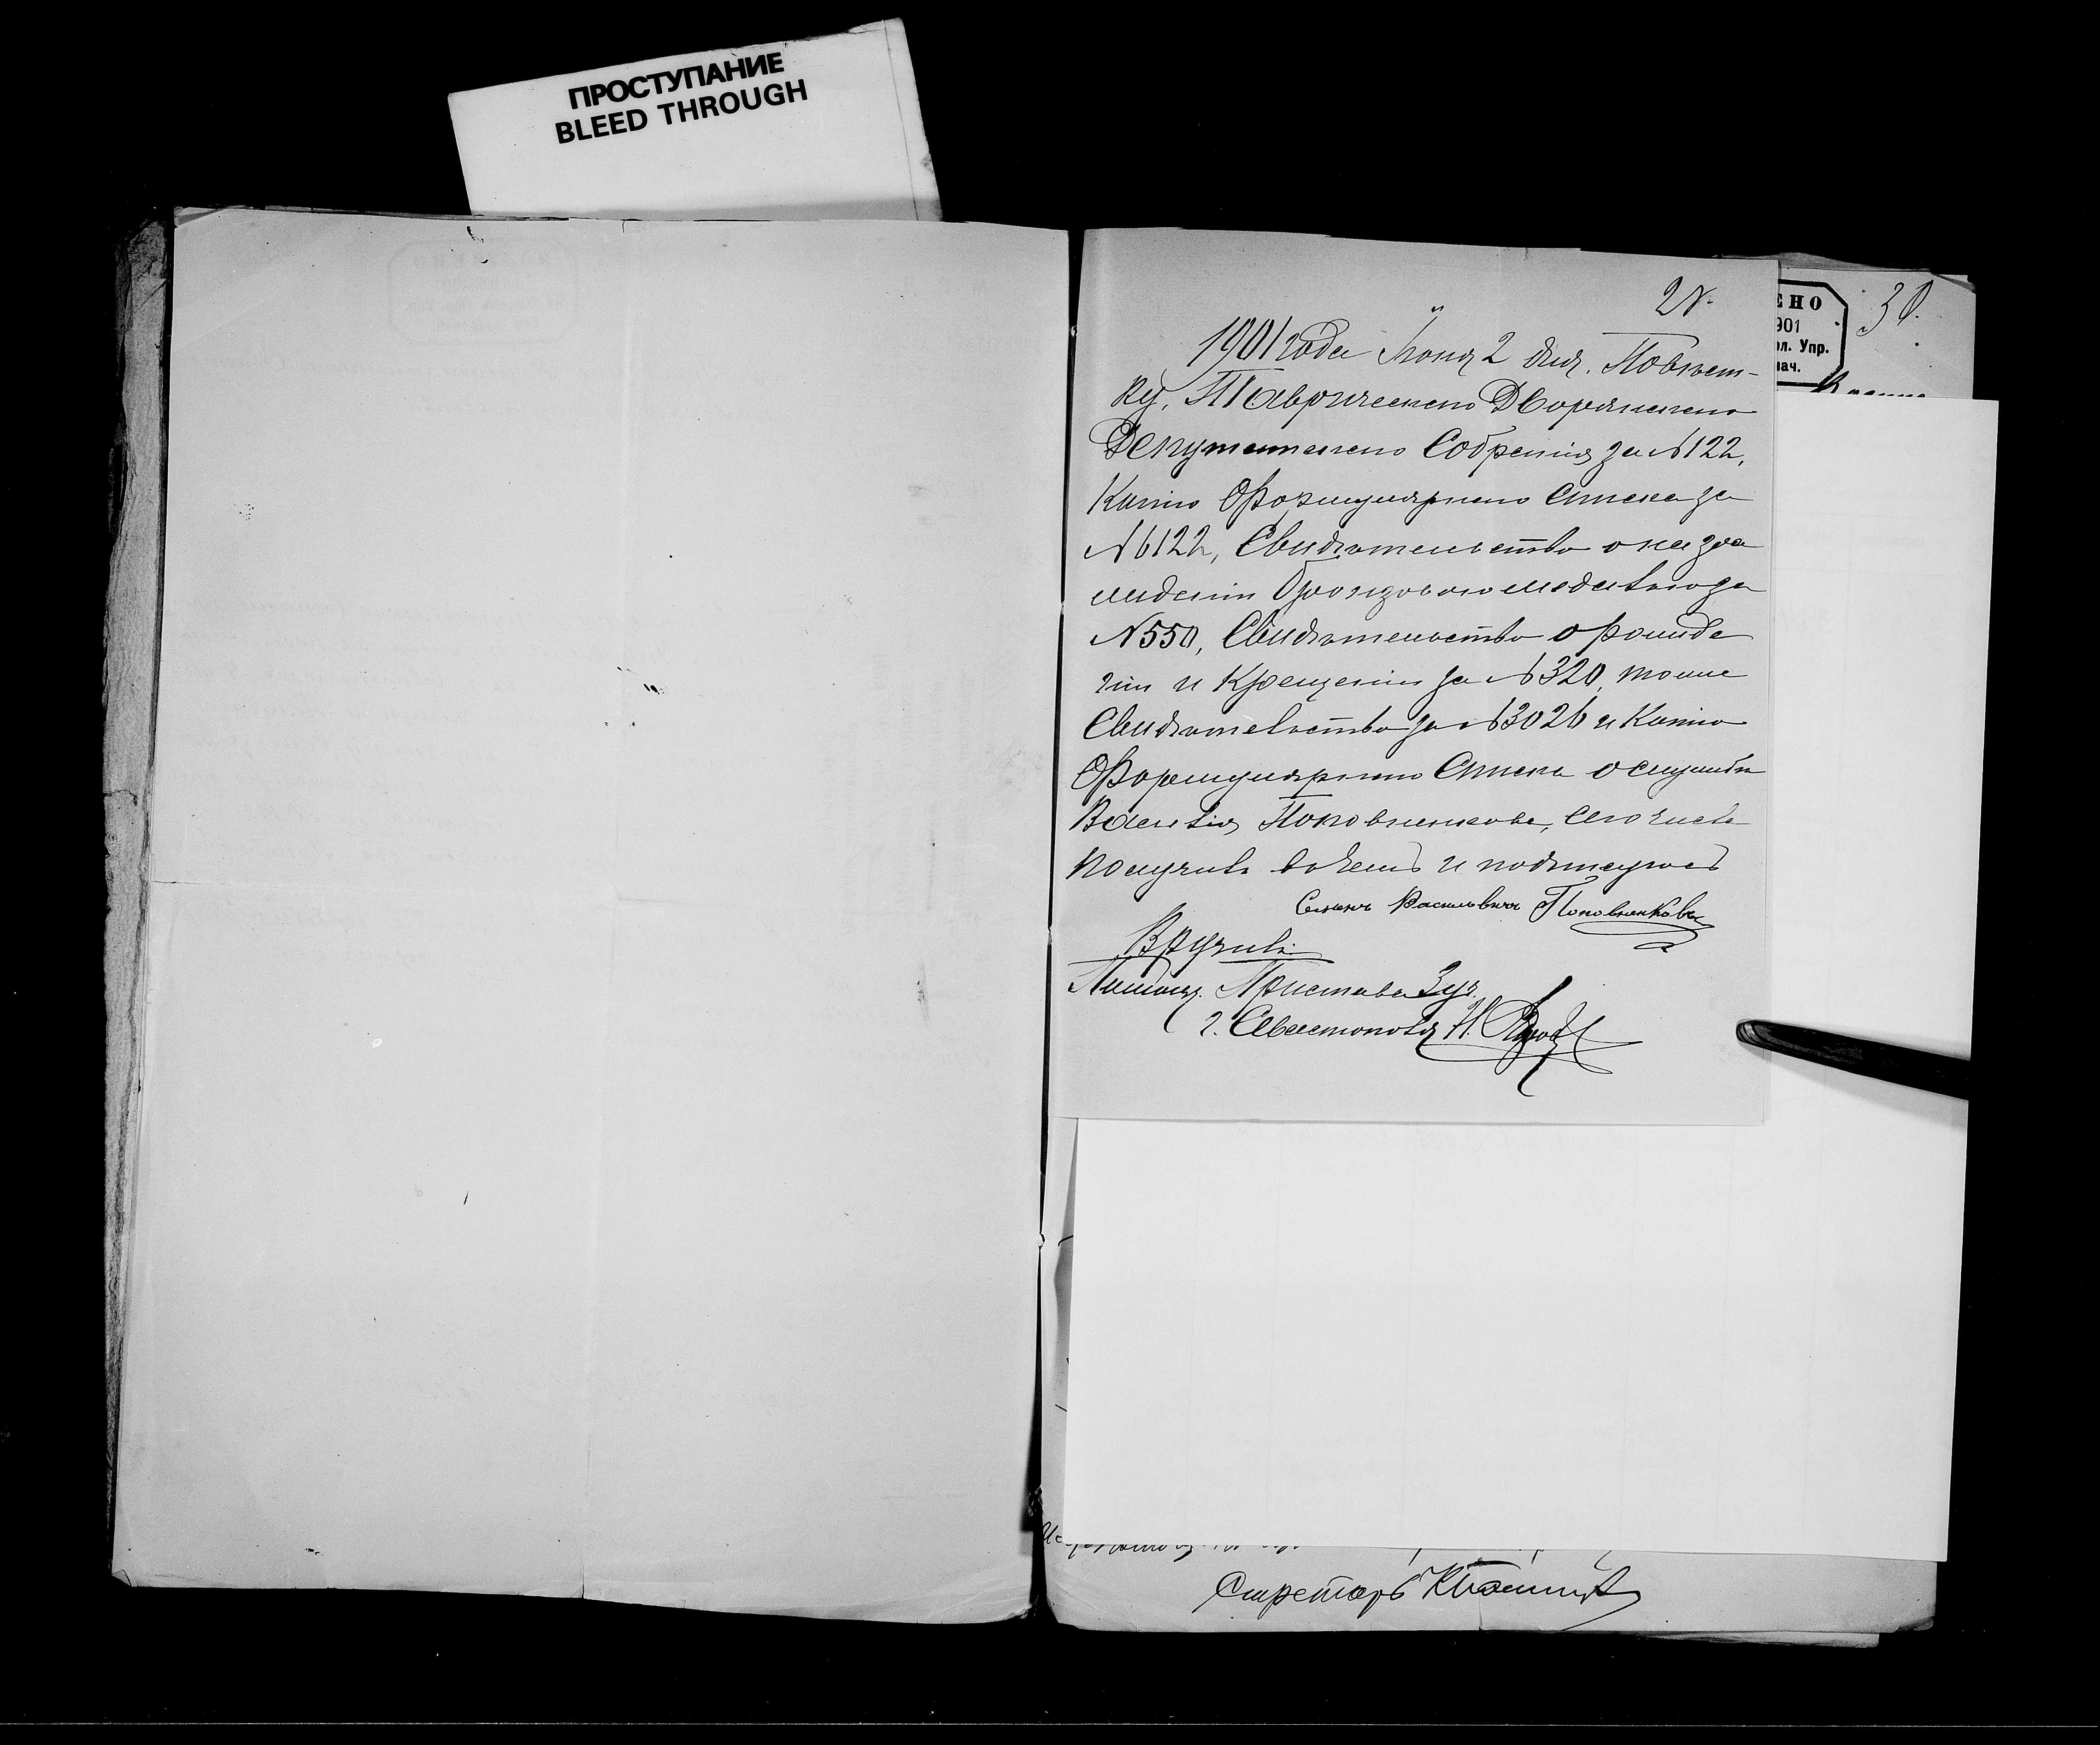 ПРОСТУПАНИЕ
BLEED THROUGH
ЕНО
901
ол. Упр.
нач.
1901 года Іюня 2 дня. Повѣст-
ку, Таврическаго Дворянскаго
Депутатскаго Собранія за №122,
Копію Формулярнаго Списка за
№6122, Свидѣтельство о награ
жденіи Бронзовою медалью за
№550, Свидѣтельство о рожде
ніи и Крещеніи за №320, тоже
Свидѣтельство за №3026 и Копію
Формулярнаго Списка о службѣ
Василія Поповниченкова, сего числа
получилъ въ чемъ и подписуюсь
Семенъ Васильевичъ
Вручилъ
Помощ. Пристава 3 уч.
г. Севастополя Н.
Секретарь